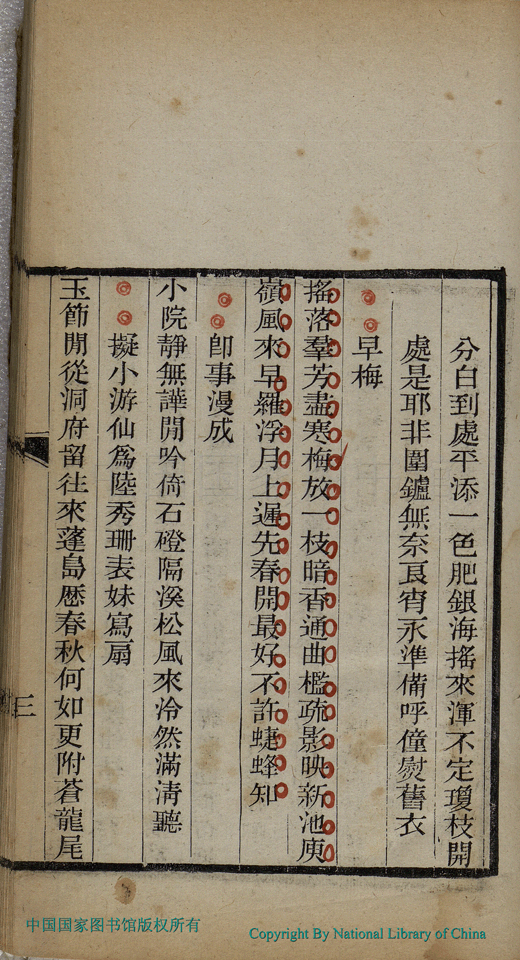 分白到處平添一色肥銀海搖來渾不定瓊枝開
處是耶非圍鑪無奈良宵永準備呼僮熨舊衣
早梅
搖落羣芳盡寒梅放一枝暗香通曲檻疏影映新池庾
嶺風來早羅浮月上遲先春開最好不許蜨蜂知
卽事漫成
小院靜無譁閒吟倚石磴隔溪松風來泠然滿淸聽
擬小游仙爲陸秀珊表妹寫扇
玉節閒從洞府留往來蓬島歷春秋何如更附蒼龍尾
三
中国国家图书馆版权所有
Copyright By National Library of China